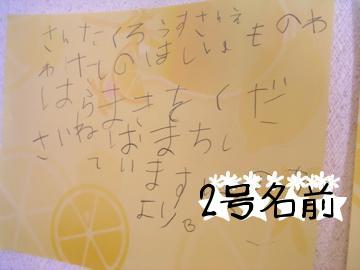 さんたくろうすさんえ
ものわ
けてのほしい
はらまきをくだ
さいねばまちし
ています
より
2号名前